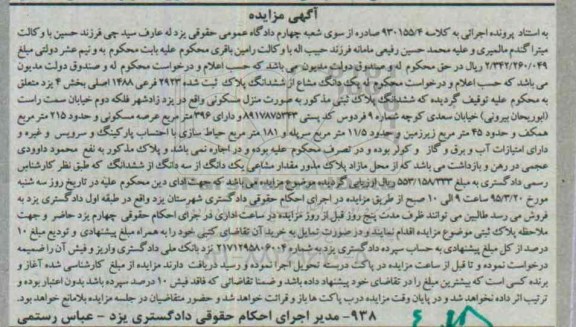 آگهی مزایده
به استناد پرونده اجرائی به کلاسه ۹۳۰۱۵۵/۴ صادره از سوی شعبه چهارم دادگاه عمومی حقوقی یزد له عارف سید چی فرزند حسین با وکالت
میترا گندم مالمیری و علیه محمد حسین رفیعی مامانه فرزند حبیب اله با وکالت رامین باقری محکوم علیه بابت محکوم به و نیم عشر دولتی مبلغ
۲/۳۴۲/۲۶۰/۰۴۹ ریال در حق محکوم له و صندوق دولت مدیون می باشد که حسب اعلام و درخواست محکوم له و صندوق دولت مدیون
می باشد که حسب اعلام و درخواست محکوم له یک دانگ مشاع از ششدانگ پلاک ثبت شده ۲۹۲۳ فرعی ۱۴۸۸ اصلی بخش ۴ یزد متعلق
به محکوم علیه توقیف گردیده که ششدانگ پلاک ثبتی مذکور به صورت منزل مسکونی واقع در یزد آزادشهر فلکه دوم خیابان سمت راست
(ابوریحان بیرونی) خیابان سعدی کوچه شماره ۹ فردوس کد پستی ۸۹۱۷۸۷۵۳۶۳ و دارای ۳۹۶ متر مربع عرصه مسکونی و حدود ۲۱۵ متر مربع
همکف و حدود ۴۵ متر مربع زیرزمین و حدود ۱۱/۵ متر مربع سرپله و ۱۸۱ متر مربع حیاط سازی با احتساب پارکینگ و سرویس و غیره و
دارای امتیازات آب و برق و گاز و کولر بوده و در تصرف محکوم علیه بوده و در اجاره نمی باشد و پلاک مذکور به نفع محمود داوودی
عجمی در رهن و بازداشت می باشد که از محل مازاد پلاک مذور مقدار مشاعی یک دانگ از سه دانگ از ششدانگ که طبق نظر کارشناس
رسمی دادگستری به مبلغ ۵۵۳/۱۵۸/۳۳۳ ریال ارزیابی گردیده موضوع مزایده می باشد که جهت ادای دین محکوم علیه در تاریخ روز سه شنبه
مورخ ۹۵/۳/۲۰ ساعت ۹ الی ۱۰ صبح از طریق مزایده در اجرای احکام حقوقی دادگستری شهرستان یزد واقع در طبقه اول دادگستری یزد به
فروش می رسد طالبین می توانند ظرف مدت پنج روز قبل از روز مزایده در ساعت اداری در اجرای احکام حقوقی چهارم یزد حاضر و جهت
ملاحظه پلاک ثبتی موضوع مزایده اقدام نمایند و در صورت تمایل به خرید آن تقاضای کتبی خود را به همراه مبلغ پیشنهادی و تودیع مبلغ ۱۰
درصد از کل مبلغ پیشنهادی به حساب سپرده دادگستری یزد به شماره ۲۱۷۱۲۹۵۸۰۶۰۰۴ نزد بانک ملی دادگستری واریز و فیش آن را ضمیمه
درخواست نموده و تا قبل از ساعت مزایده در پاکت دربسته تحویل اجرا نموده و رسید دریافت دارند مزایده از مبلغ کارشناسی شده آغاز و
برنده کسی است که بیشترین مبلغ را در تقاضای خود پیشنهاد داده باشد و ضمنا تقاضائی که فاقد فیش ۱۰ درصد سپرده باشد بدون اعتبار بوده و
ترتیب اثر داده نخواهد شد و در پایان وقت مزایده درب پاکت ها باز و قرائت خواهد شد و حضور متقاضیان در جلسه مزایده بلامانع خواهد بود.
۹۳۸- مدیر اجرای احکام حقوقی دادگستری یزد - عباس رستمی